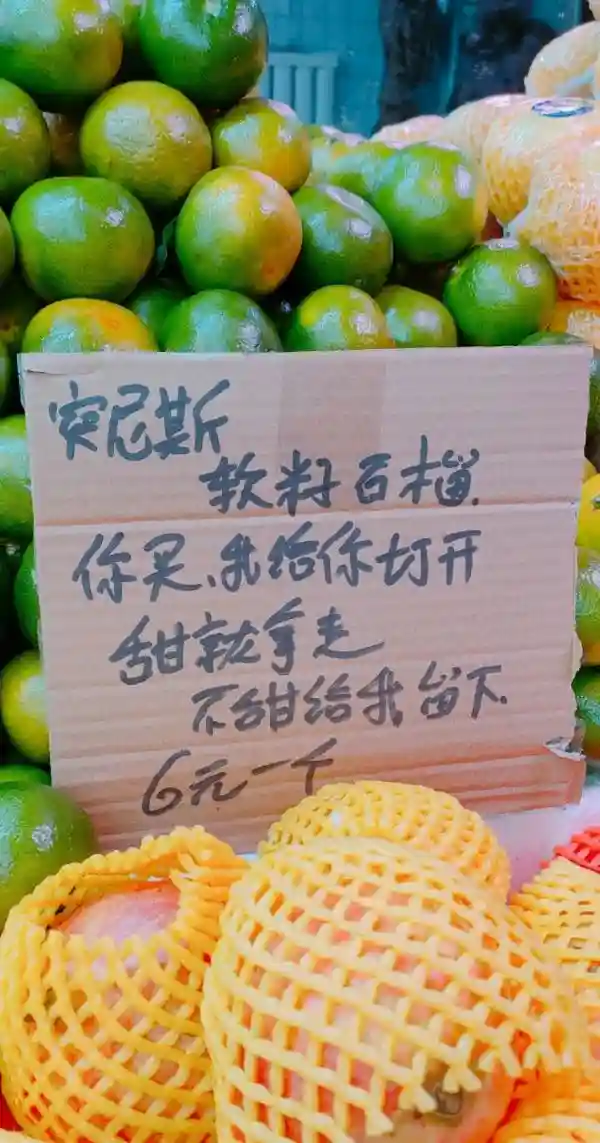 突尼斯
软籽石榴.
你买、我给你切开
甜就拿走
不甜给我留下.
6元一个